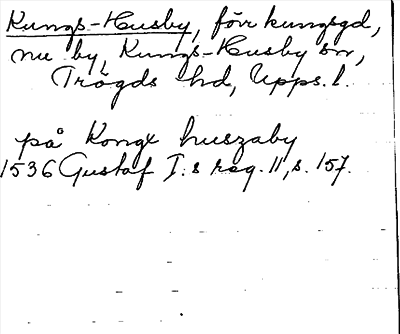 Kungs-Husby, förr kungsgd,
nu by, Kungs-Husby sn,
Trögds hd, Upps. l.
på Kongx huszaby
1536 Gustaf I:s reg. 11, s. 157.